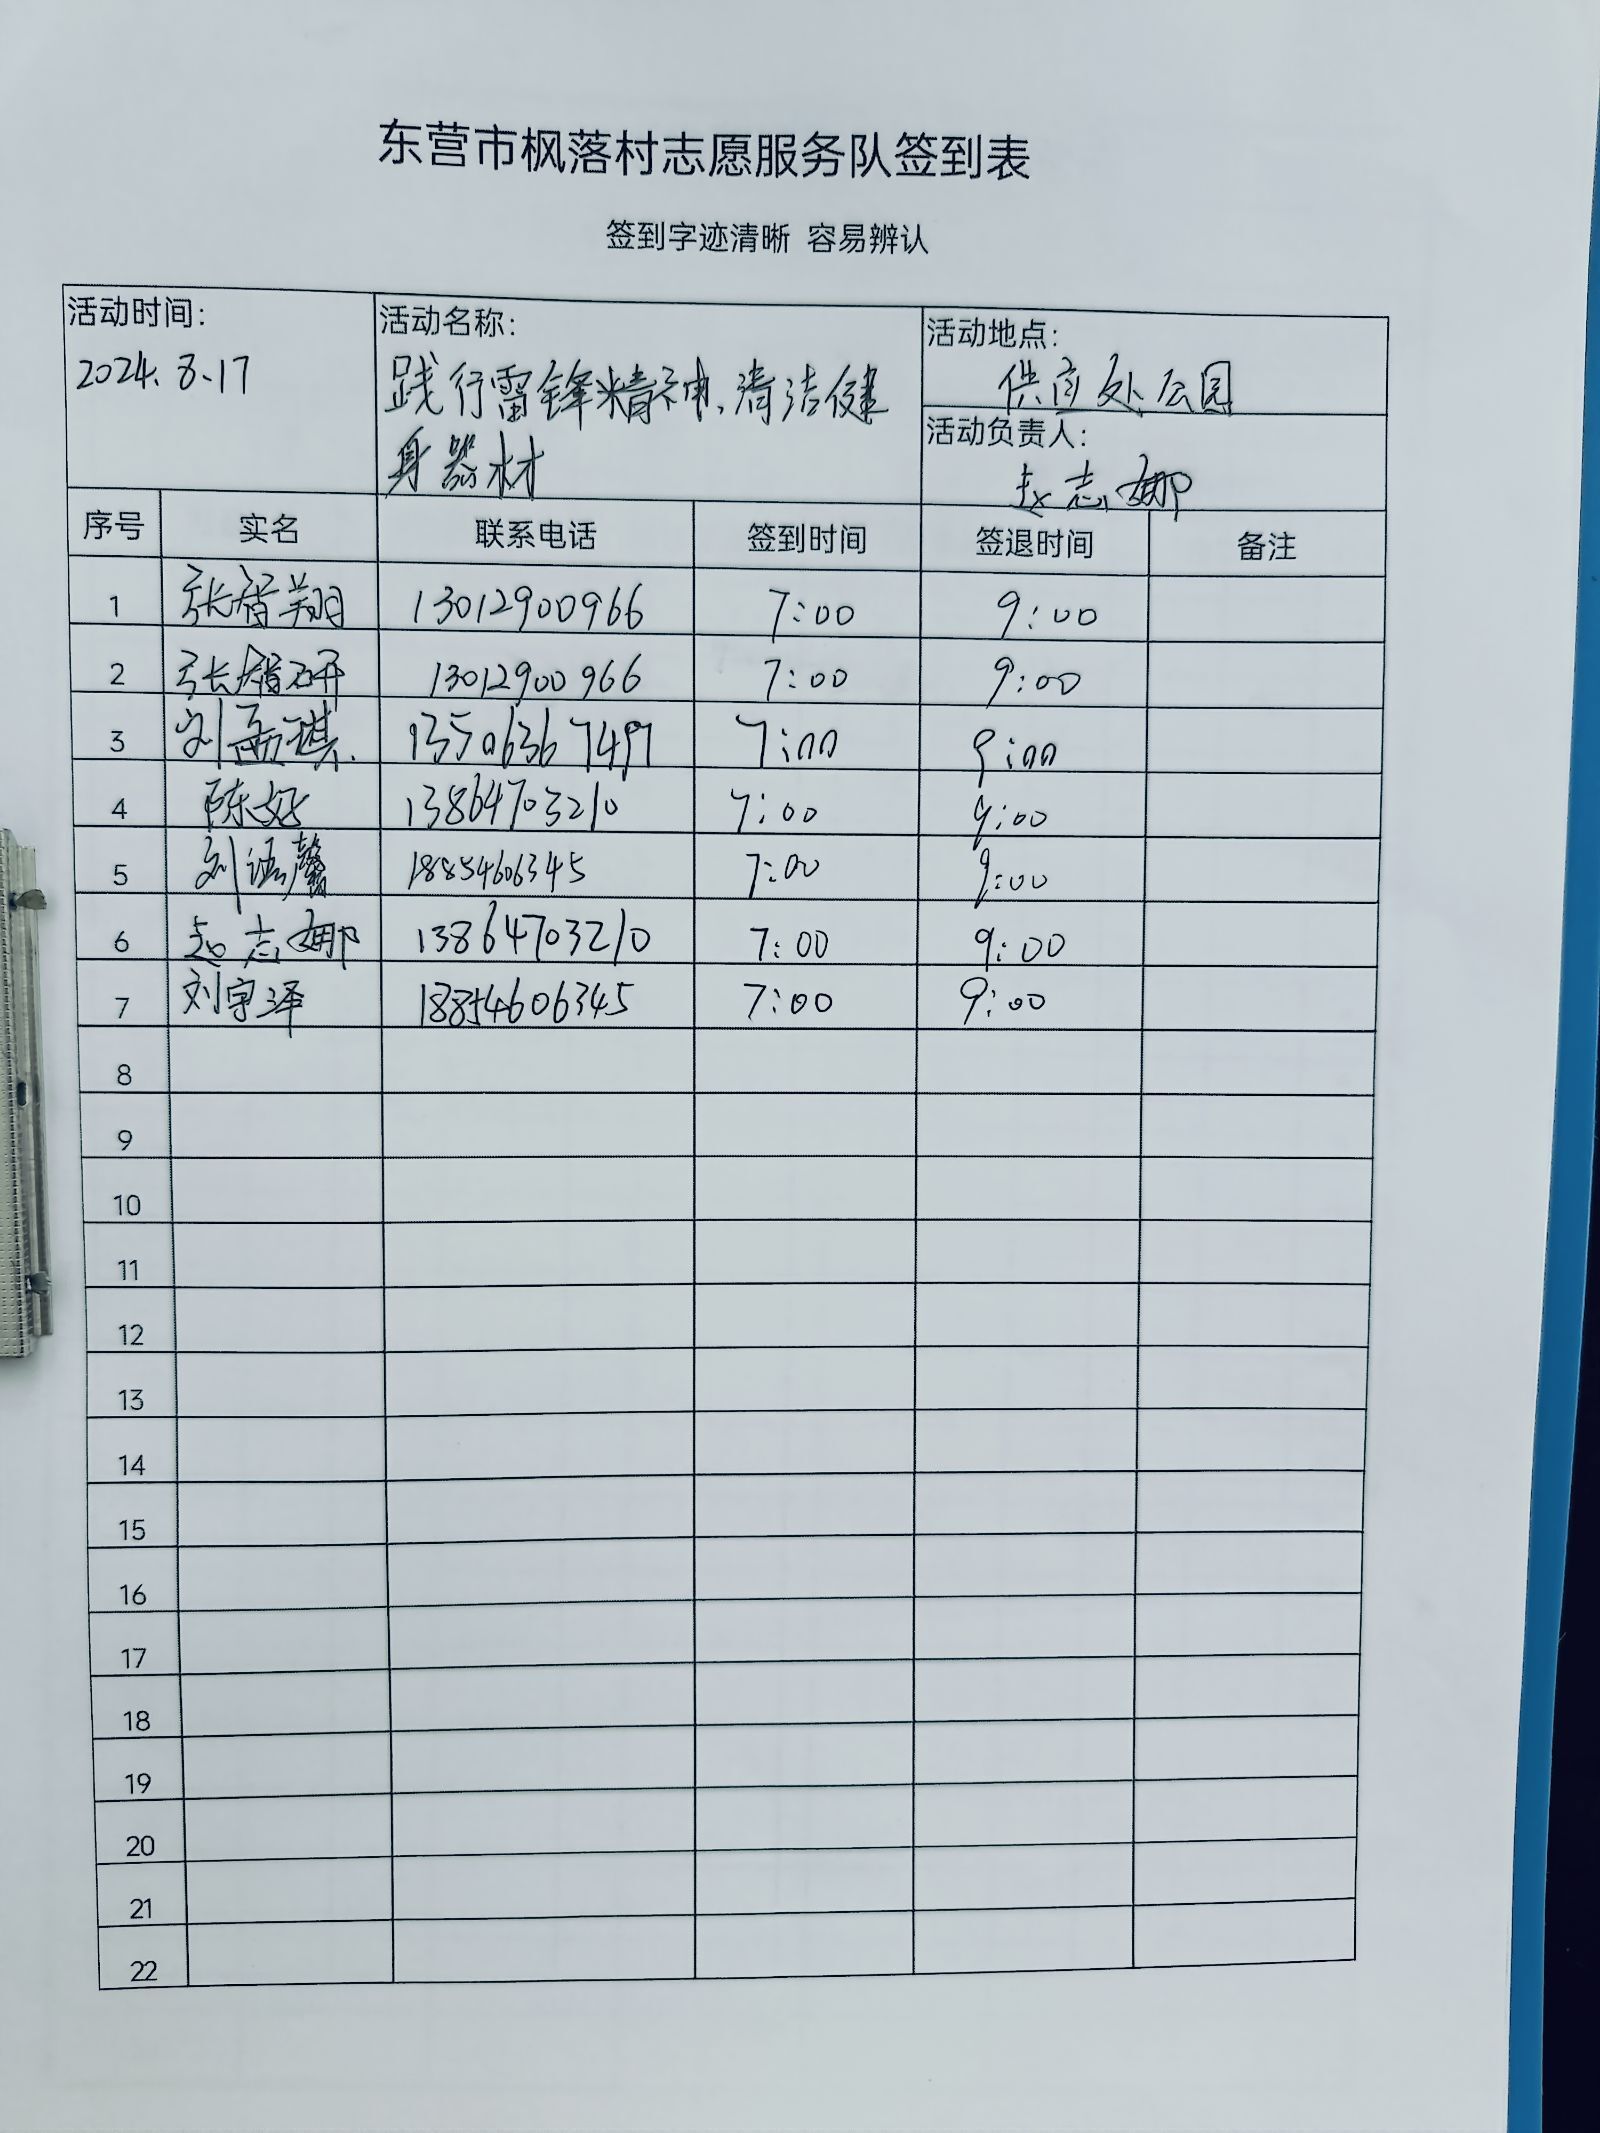 东营市枫落村志愿服务队签到表
签到字迹清晰 容易辨认
活动时间: 2024.8.17
活动名称: 践行雷锋精神,清洁健
身器材
活动地点: 供应处公园
活动负责人: 赵志娜
序号 实名 联系电话 签到时间 签退时间 备注
1 张智翔 13012900966 7:00 9:00
2 张智研 13012900966 7:00 9:00
3 刘孟琪. 13506367497 7:00 9:00
4 陈好 13864703210 7:00 9:00
5 刘语馨 18854606345 7:00 9:00
6 赵志娜 13864703210 7:00 9:00
7 刘宇泽 18854606345 7:00 9:00
8
9
10
11
12
13
14
15
16
17
18
19
20
21
22